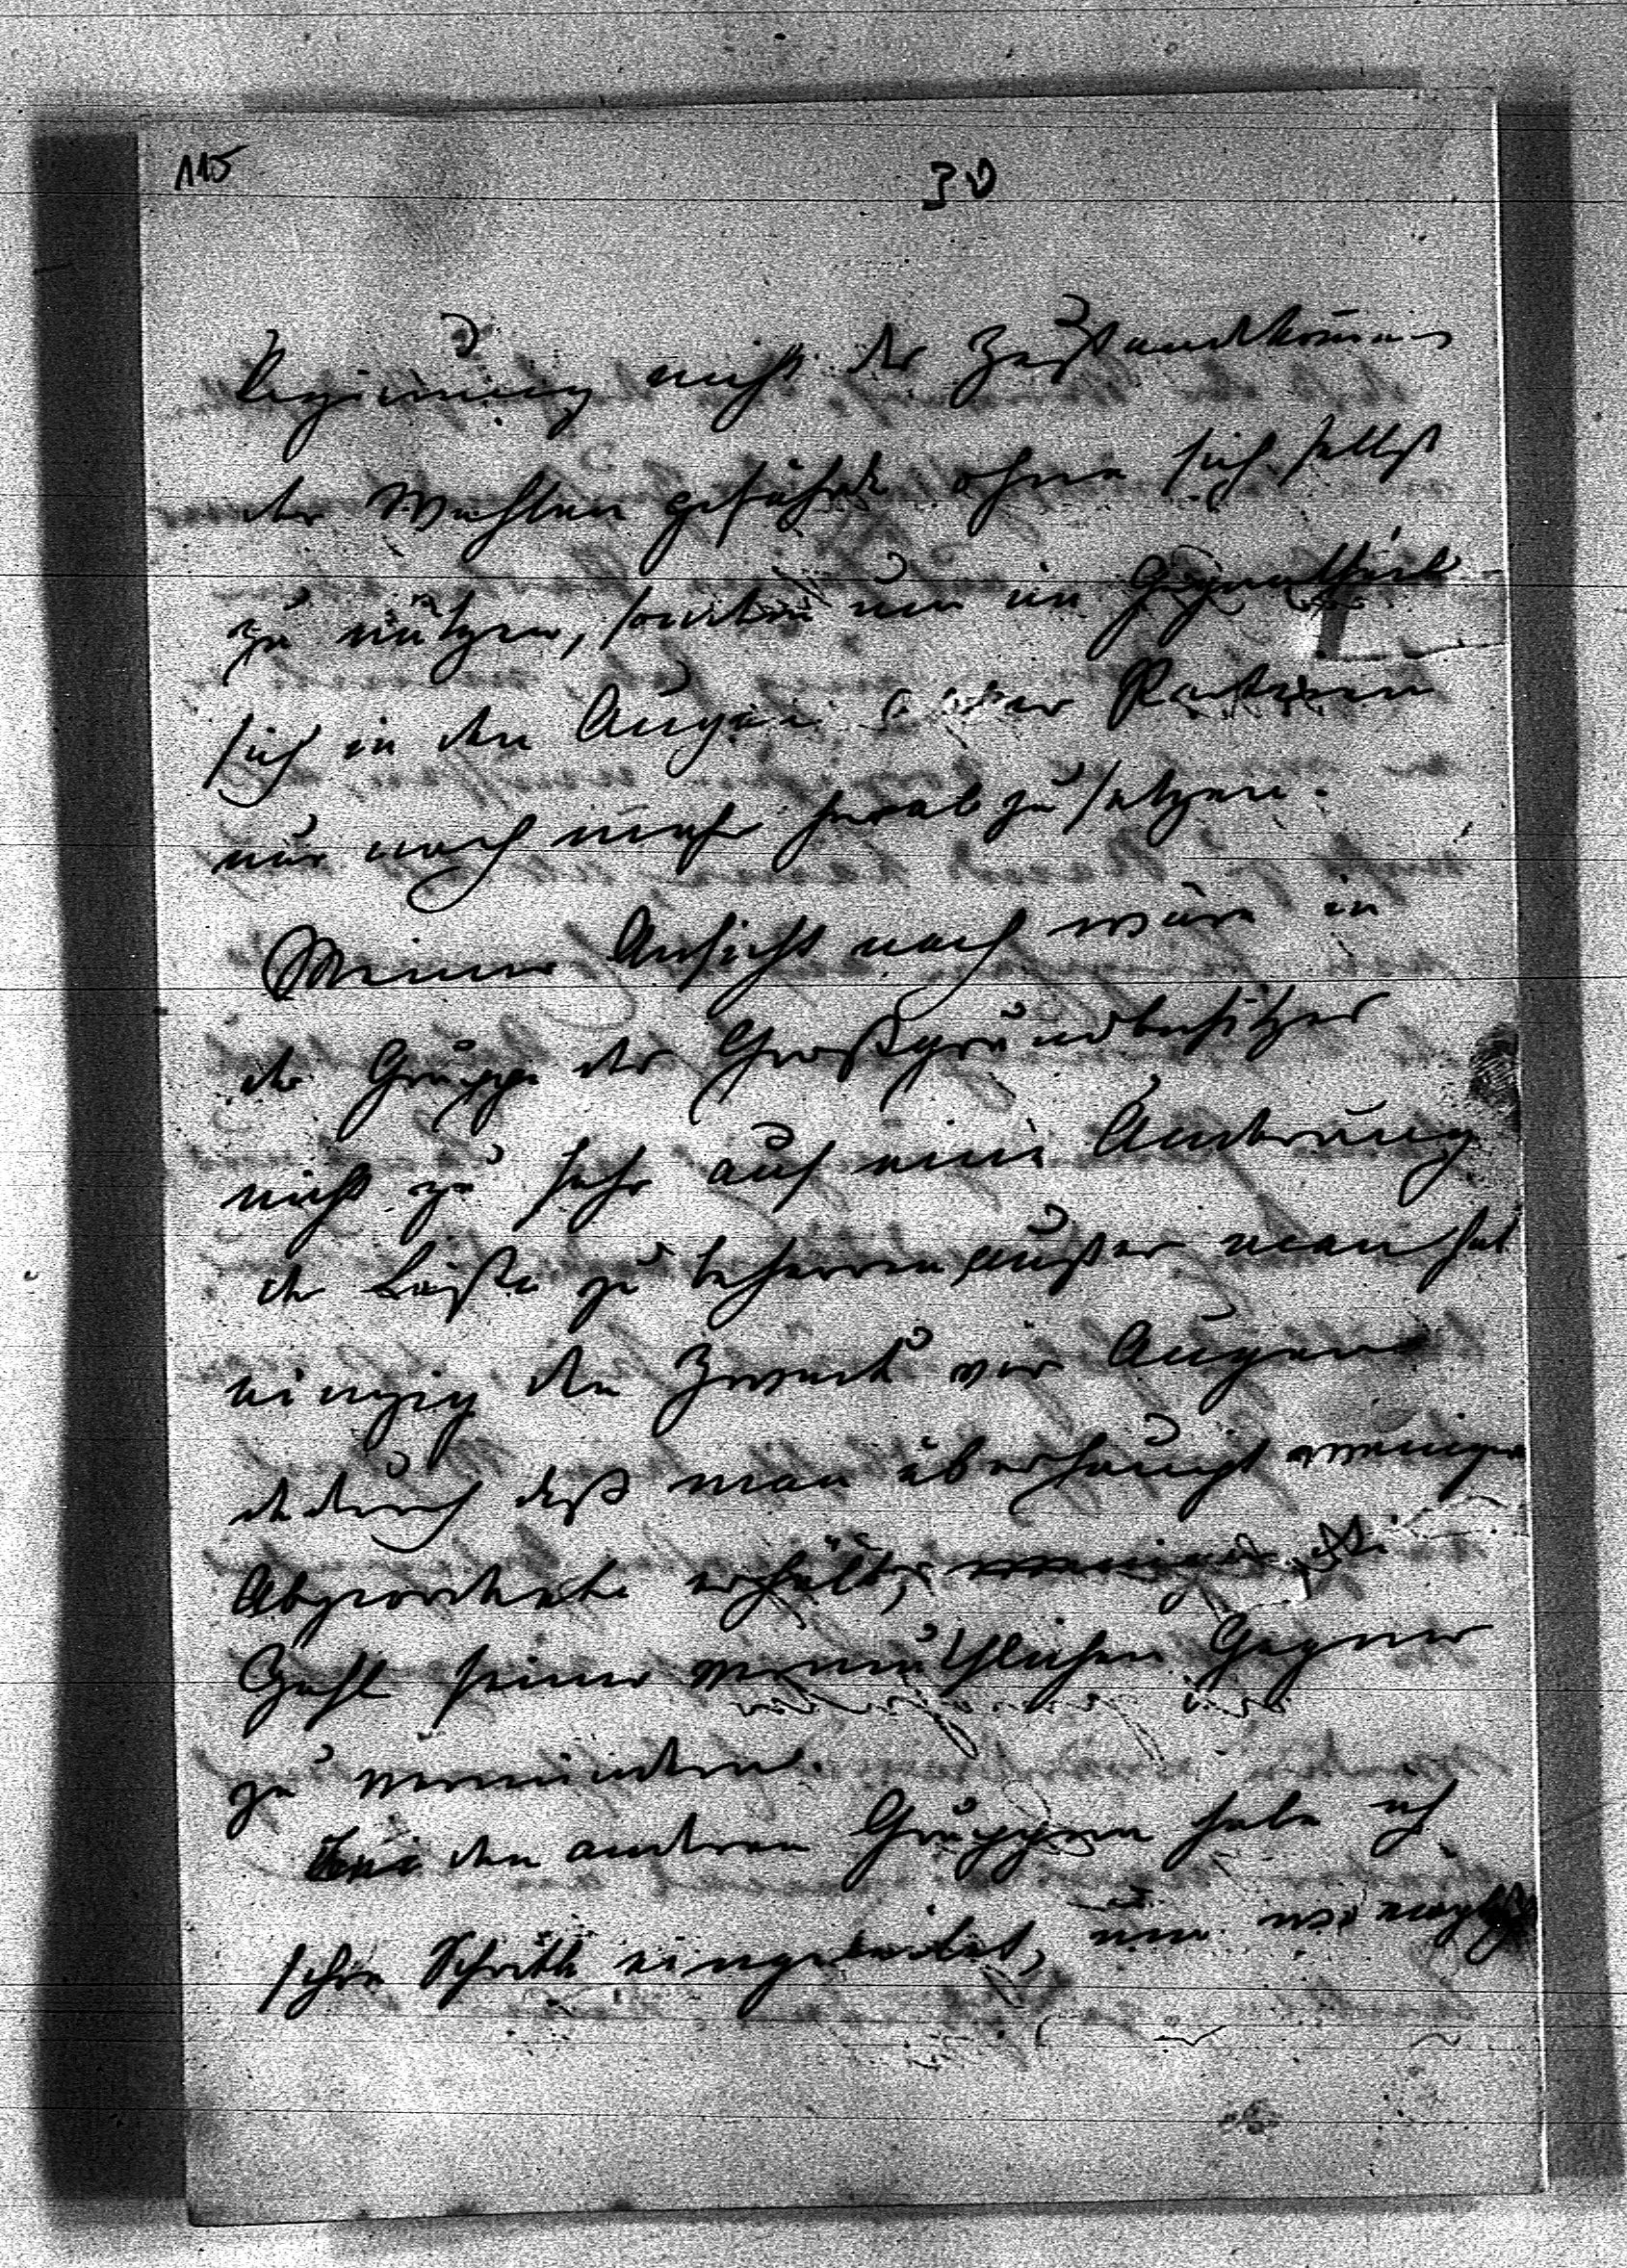 115
30
Regierung nicht das Zustandekom̄en
der Wahlen gefährde ohne sich selbst
zu nützen, sondern um im Gegentheil
sich in den Augen Parteien
nur noch mehr herabzusetzen.
Meiner Ansicht nach wäre in
der Gruppe der Großgrundbesitzer
nicht zu sehr auf eine Änderung
der Liste zu beharren, außer man hat
einzig den Zweck vor Augen
dadurch daß man überhaupt weniger
Abgeordnete erhält, die
Zahl seiner vermuthlichen Gegner
zu vermindern.
den anderen Gruppen habe ich
schon Schritte eingeleitet, um wo